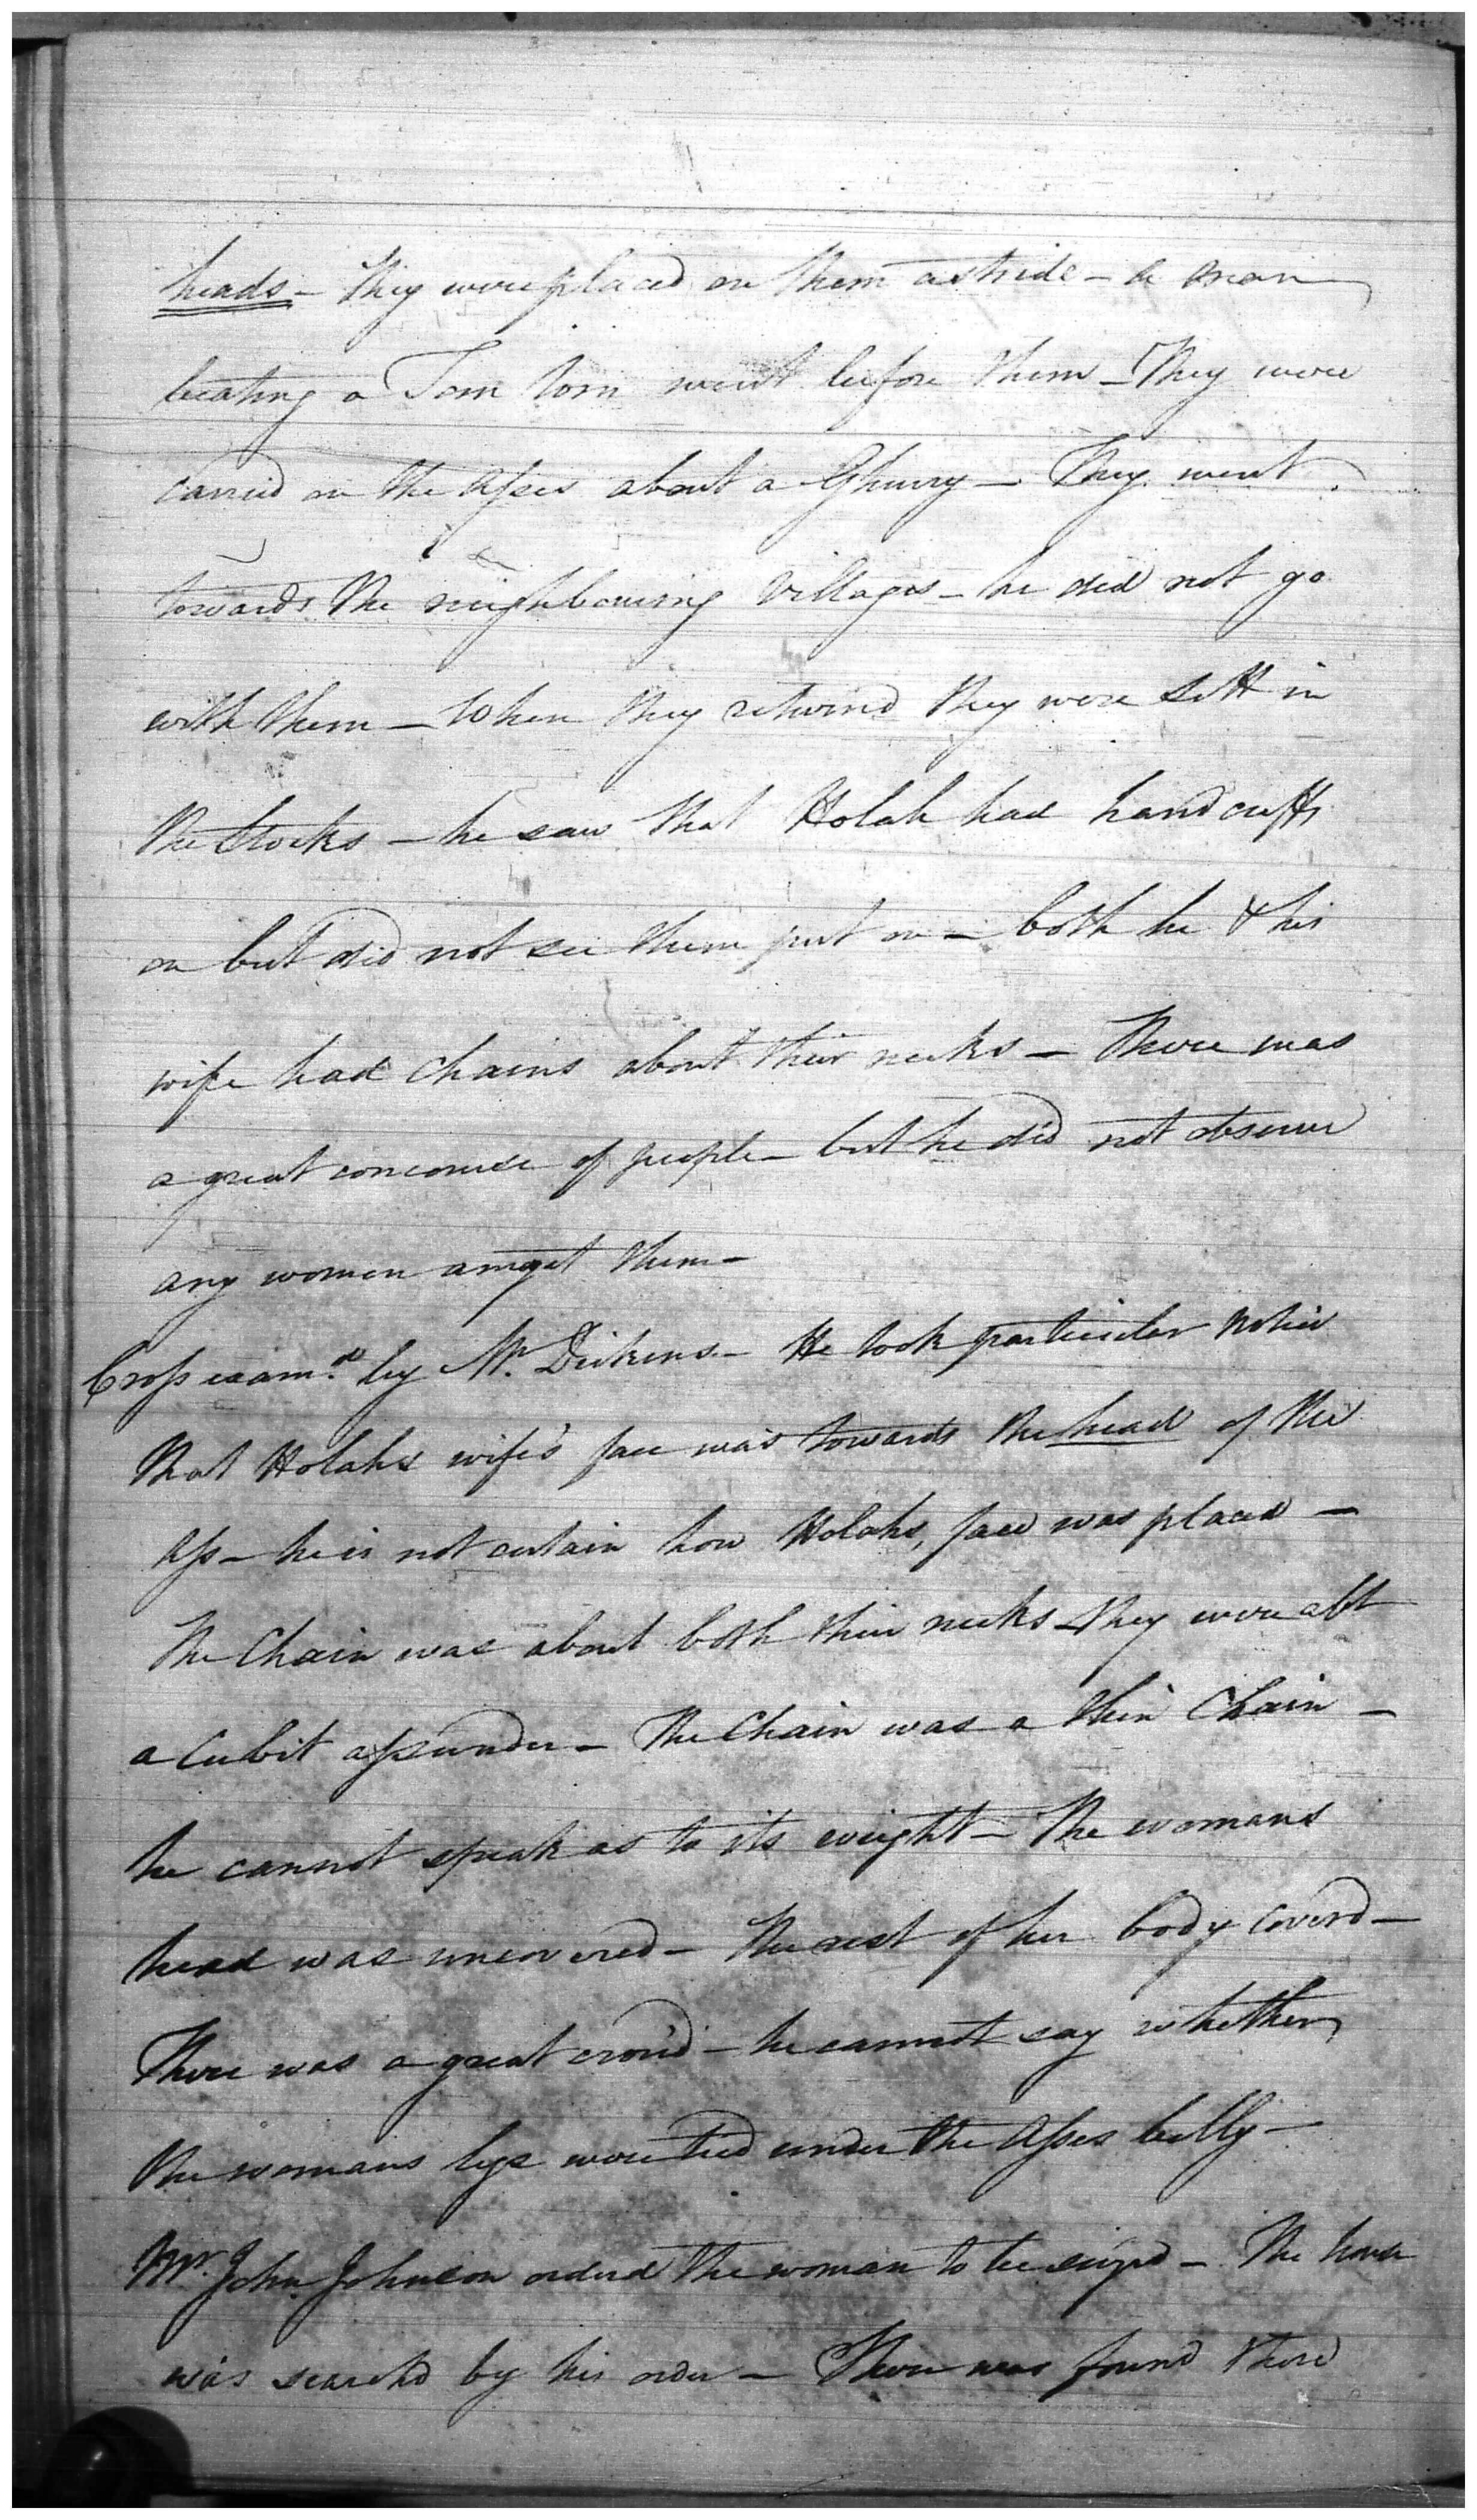 heads - They were placed on them astride - a man
beating a Tom tom went before them - They were
carried on the Asses about a Ghurry - They went
towards the neighbouring Villages - he did not go
with them - When they returnd they were sett in
the Stocks - he saw that Holah had handcuffs
on but did not see them put on - both he & his
wife had Chains about their necks - There was
a great concourse of people - but he did not observe
any women amgst them -
Cross examd. by Mr. Dickens - He took particular notice
that Holahs wife's face was towards the head of the
Ass - he is not certain how Holahs, face was placed -
The Chain was about both their necks - they were abt
a Cubit assunder - The Chain was a thin Chain -
he cannot speak as to its weight - The womans
head was uncovered - the rest of her body coverd -
There was a great crowd - he cannot say whether
the womans legs were tied under the Asses belly -
Mr. John Johnson orderd the woman to be seizd - The house
was searchd by his order - There was found there